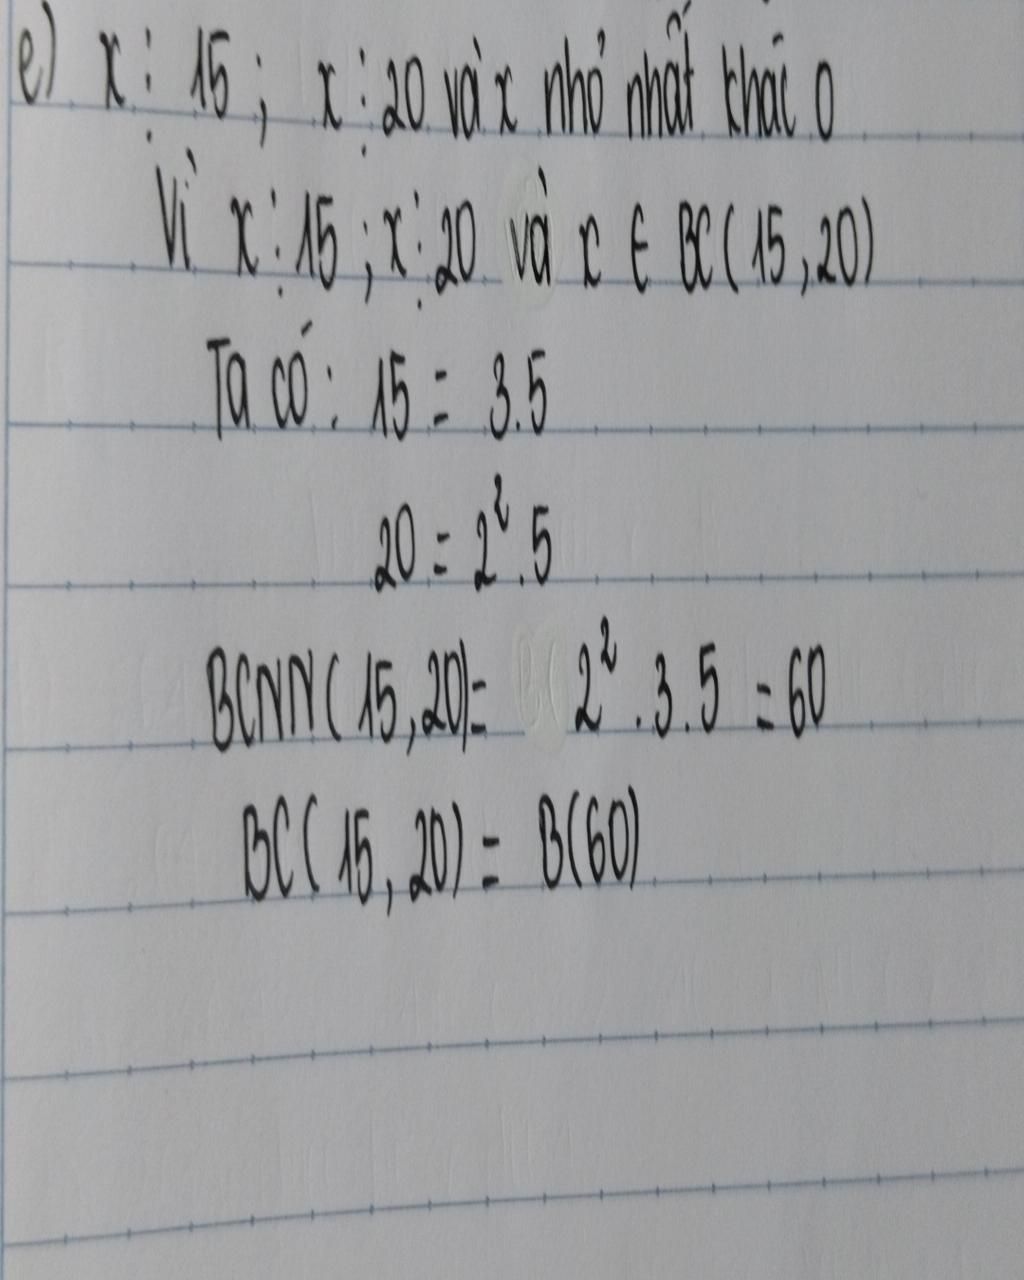 e) x ⋮ 15 ; x ⋮ 20 và x nhỏ nhất khác 0
Vì x ⋮ 15 ; x ⋮ 20 và x ∈ BC( 15 , 20 )
Ta có : 15 = 3.5
20 = 2² . 5
BCNN( 15 , 20 ) = 2² . 3 . 5 = 60
BC( 15 , 20 ) = B(60)